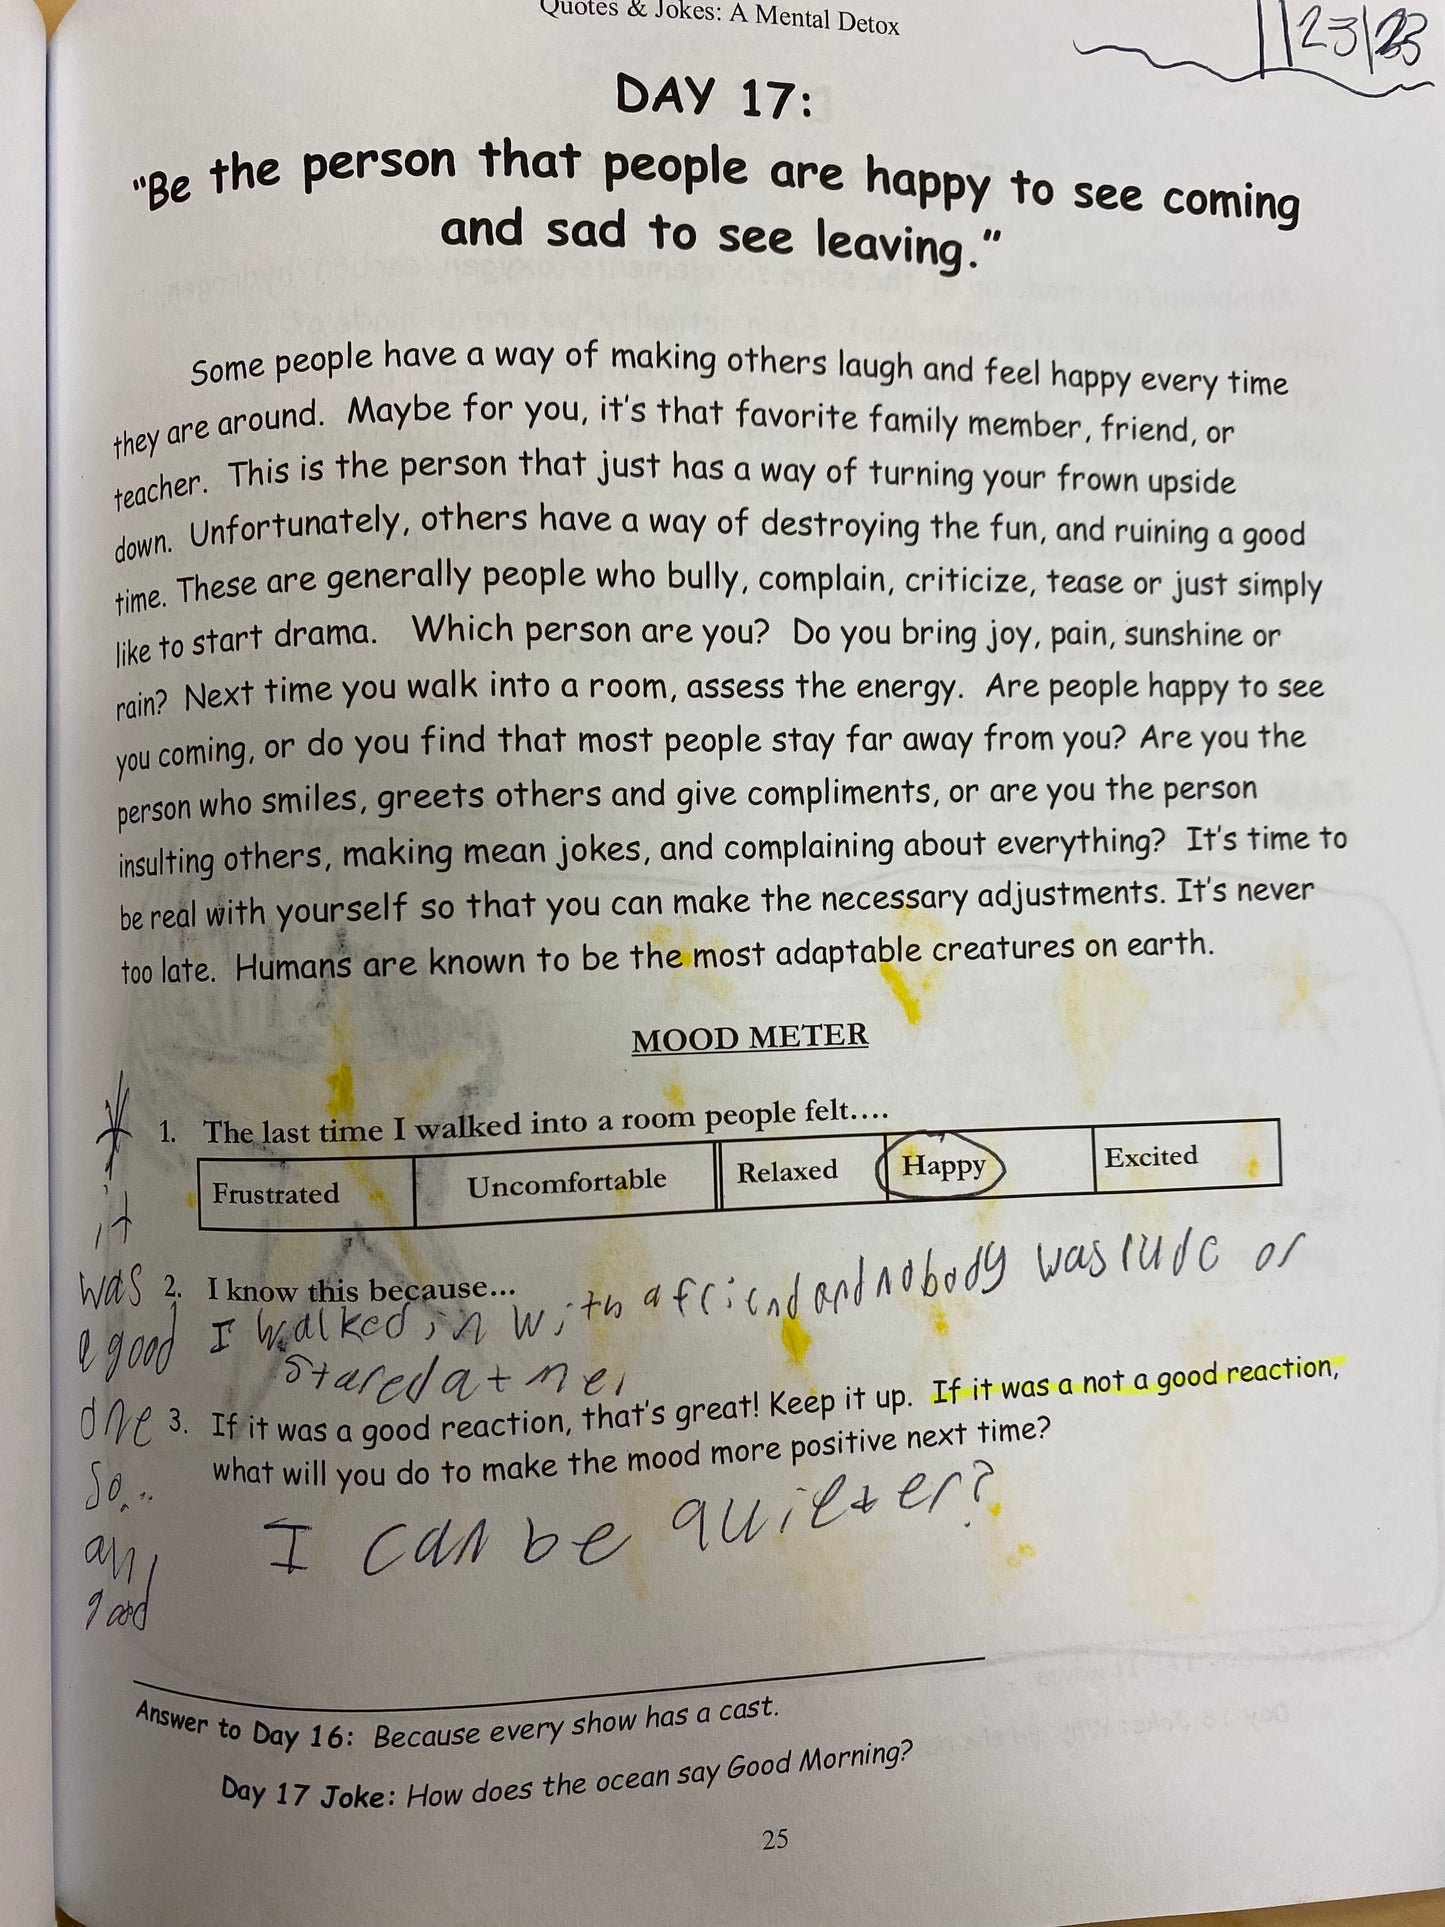 Quotes & Jokes: A Mental Detox
1/23/23
DAY 17:
"Be the person that people are happy to see coming
and sad to see leaving."
Some people have a way of making others laugh and feel happy every time
they are around. Maybe for you, it's that favorite family member, friend, or
teacher. This is the person that just has a way of turning your frown upside
down. Unfortunately, others have a way of destroying the fun, and ruining a good
time. These are generally people who bully, complain, criticize, tease or just simply
like to start drama. Which person are you? Do you bring joy, pain, sunshine or
rain? Next time you walk into a room, assess the energy. Are people happy to see
you coming, or do you find that most people stay far away from you? Are you the
person who smiles, greets others and give compliments, or are you the person
insulting others, making mean jokes, and complaining about everything? It's time to
be real with yourself so that you can make the necessary adjustments. It's never
too late. Humans are known to be the most adaptable creatures on earth.
MOOD METER
1. The last time I walked into a room people felt....
Frustrated Uncomfortable Relaxed Happy Excited
2. I know this because...
I walked in with a friend and nobody was rude or
stared at me.
3. If it was a good reaction, that's great! Keep it up. If it was a not a good reaction,
what will you do to make the mood more positive next time?
I can be quieter?
* it
was
a good
one
so...
all
good
Answer to Day 16: Because every show has a cast.
Day 17 Joke: How does the ocean say Good Morning?
25